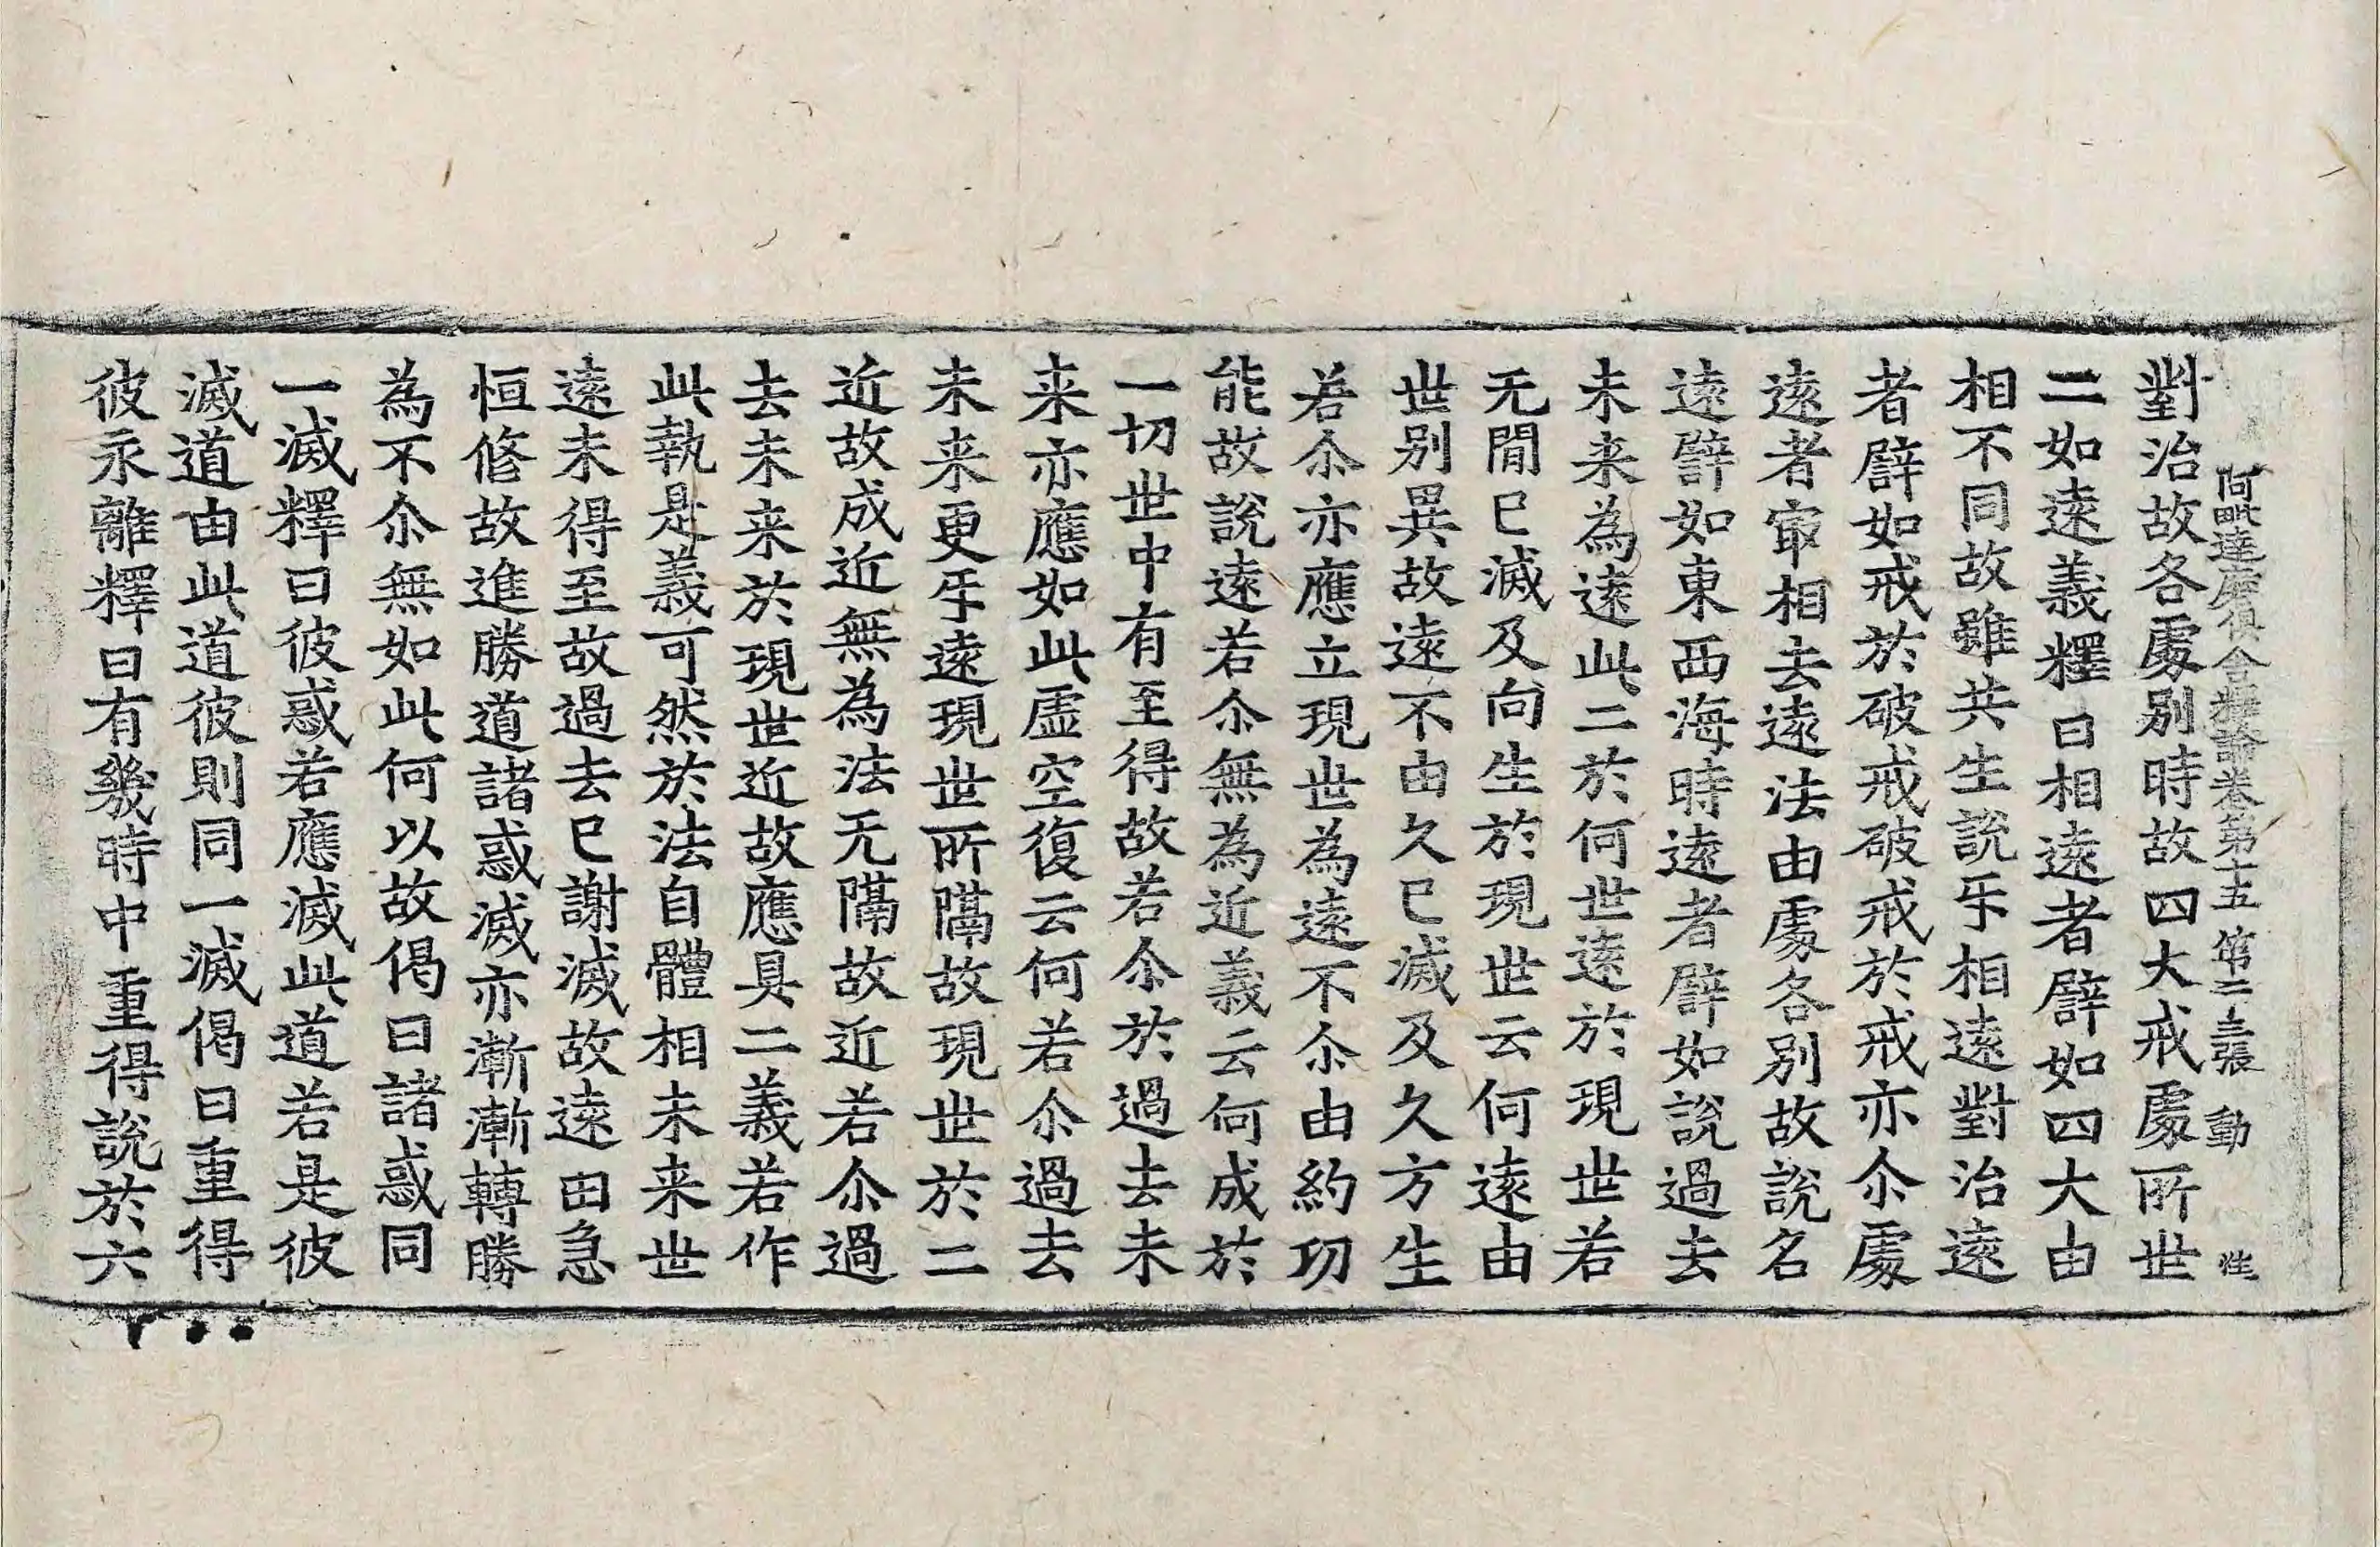 阿毗達磨俱舍釋論卷第十五 第二十三張 動
對治故各處別時故四大戒處所世
二如遠義釋曰相遠者譬如四大由
相不同故雖共生說乐相遠對治遠
者譬如戒於破戒破戒於戒亦尒處
遠者㝡相去遠法由處各別故說名
遠譬如東西海時遠者譬如說過去
未来為遠此二於何世遠於現世若
无閒已滅及向生於現世云何遠由
世別異故遠不由久已滅及久方生
若尒亦應立現世為遠不尒由約功
能故說遠若尒無為近義云何成於
一切世中有至得故若尒於過去未
来亦應如此虛空復云何若尒過去
未来更乐遠現世所隔故現世於二
近故成近無為法无隔故近若尒過
去未来於現世近故應具二義若作
此執是義可然於法自體相未来世
遠未得至故過去已謝滅故遠由急
恒修故進勝道諸惑滅亦漸漸轉勝
為不尒無如此何以故偈曰諸惑同
一滅釋曰彼惑若應滅此道若是彼
滅道由此道彼則同一滅偈曰重得
彼永離釋曰有幾時中重得說於六